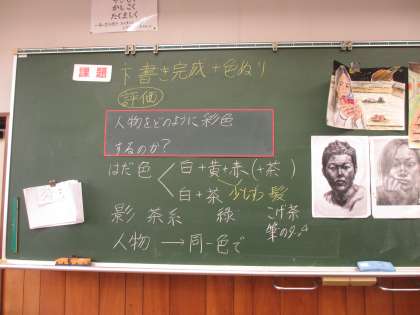 かしこく
たくましく
課題
下書き完成+色ぬり
評価
人物をどのように彩色
するのか?
はだ色
白+黄+赤(+茶)
白+茶
髪
影 茶系 緑 こげ茶
筆のタッチ
人物 → 同一色で